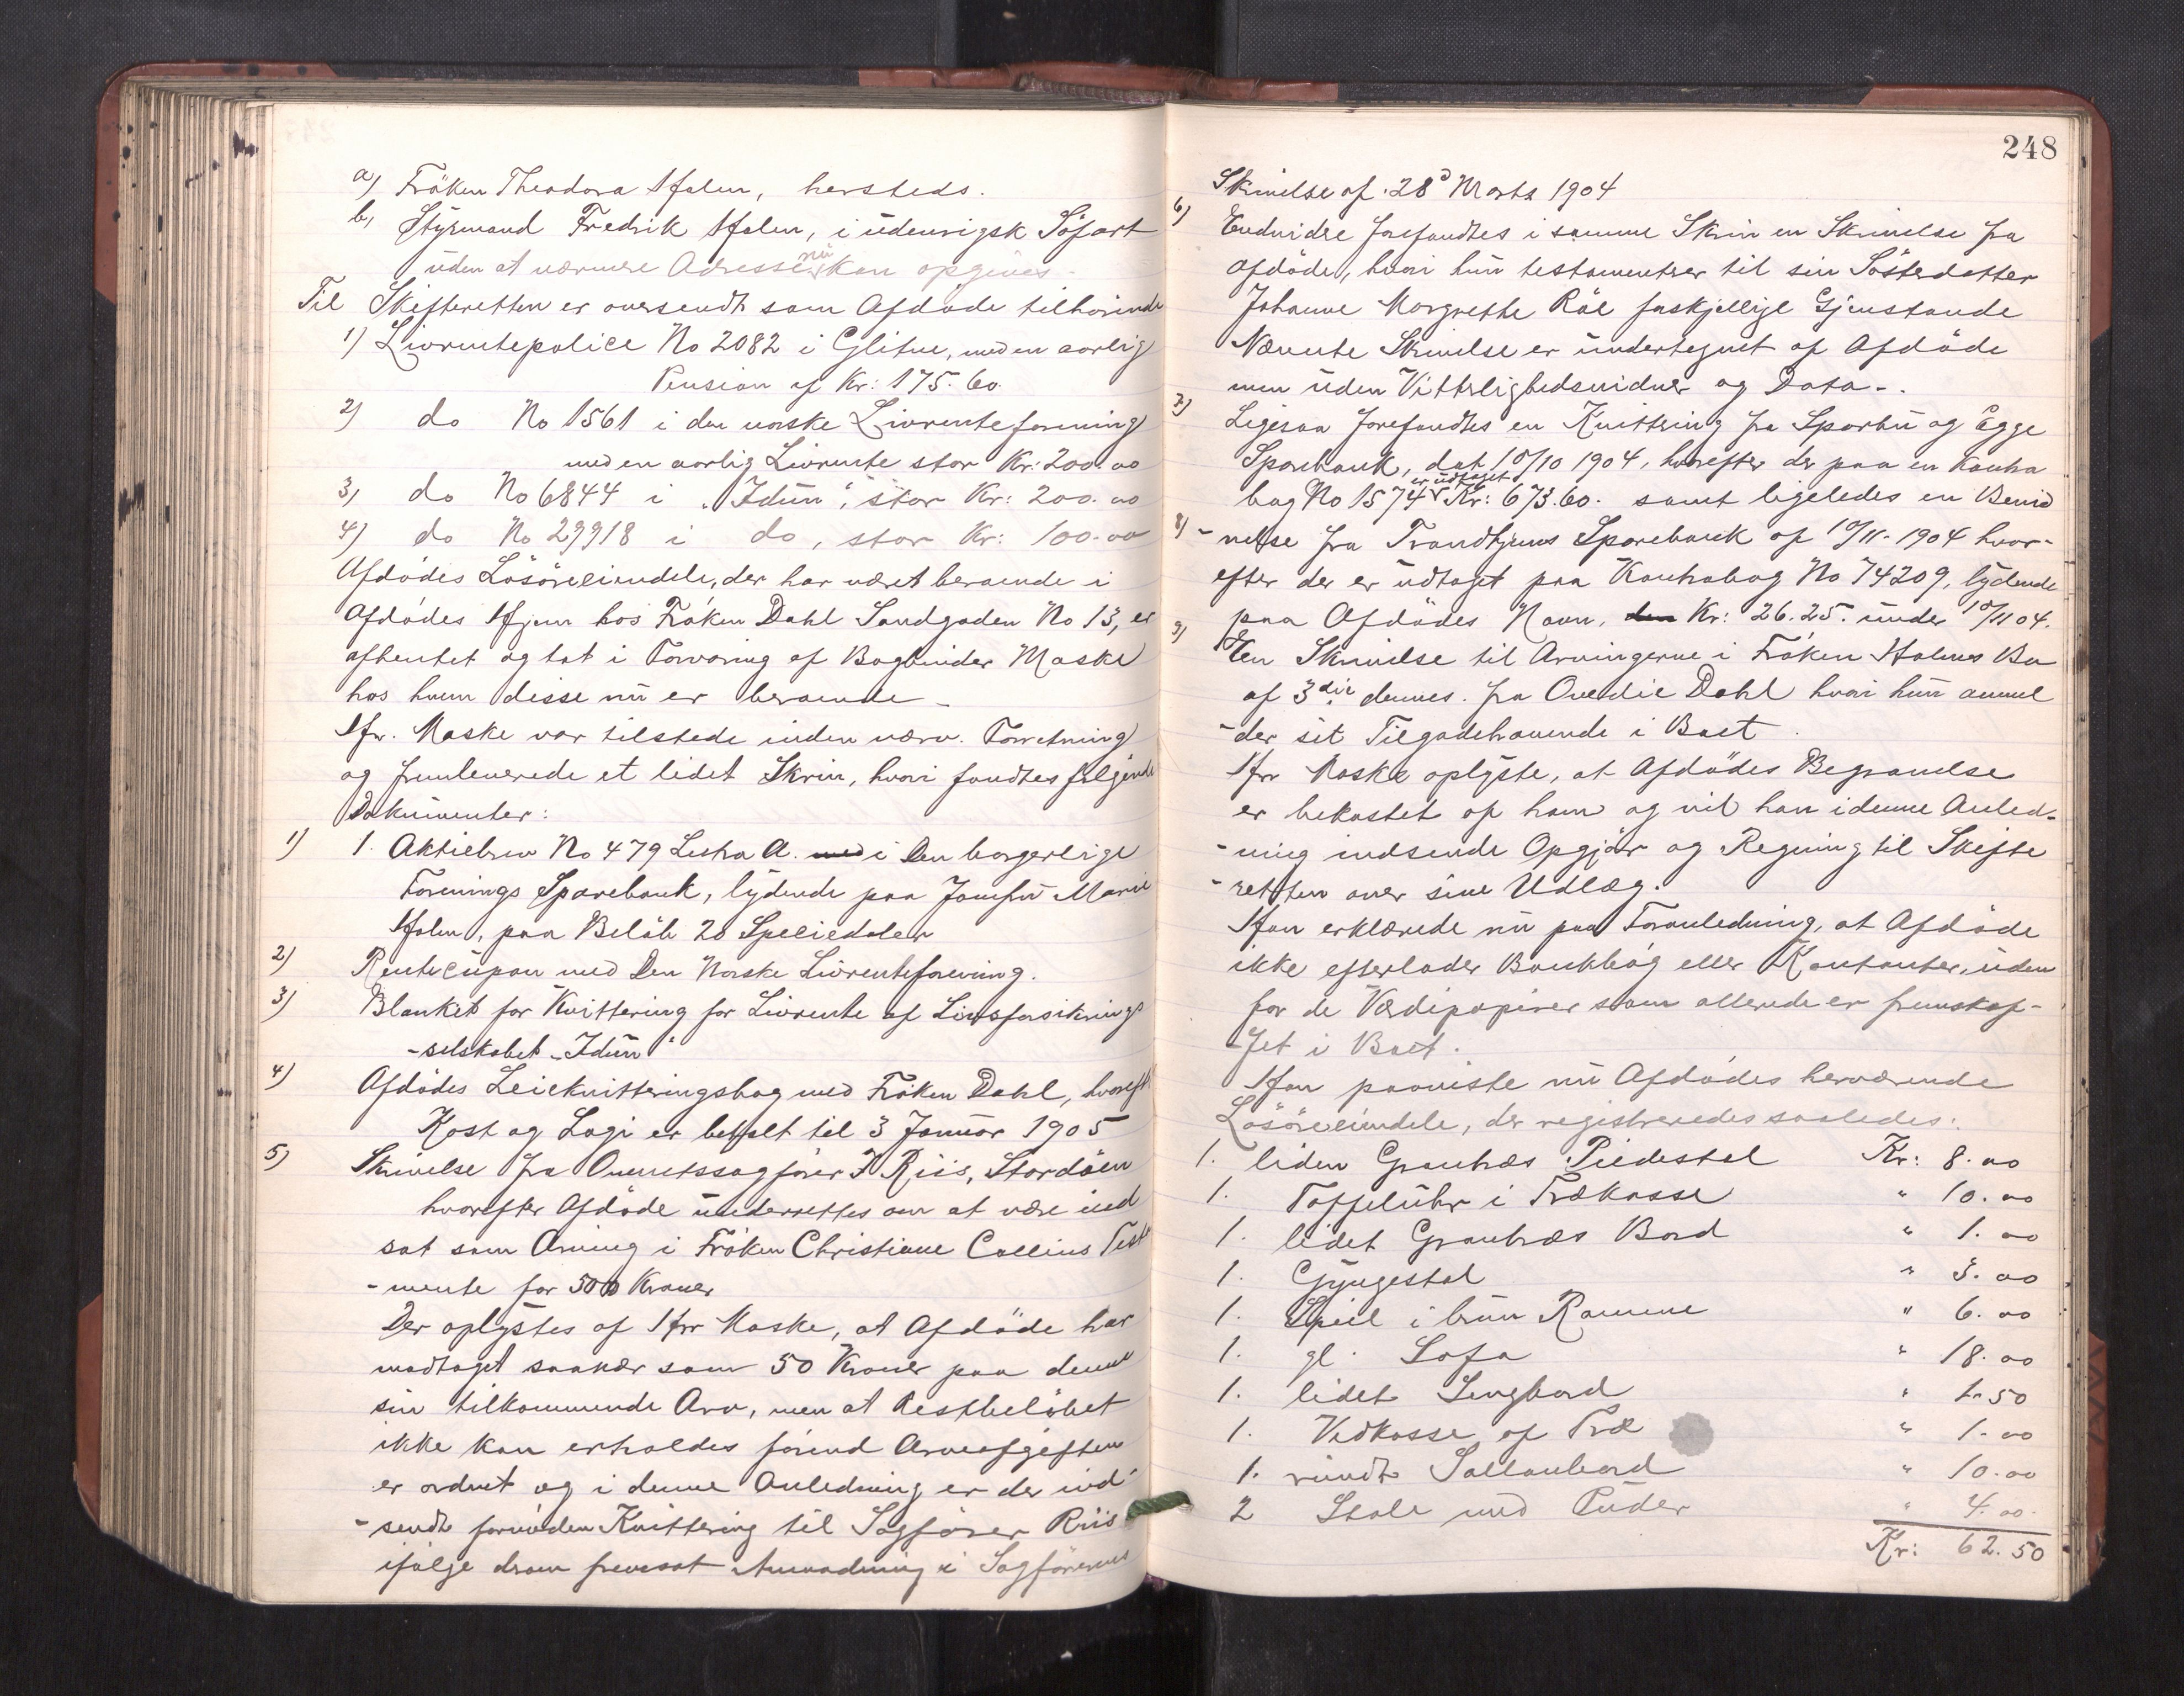 a) Fröken Theodora Holm, hersteds.
b, Styrmand Fredrik Holm, i udenrigsk Söfart
uden at nærmere Adresse nu kan opgives.
Til Skifteretten er oversendt som Afdöde tilhörende
1) Livrentepolice No 2082 i Glitne, med en aarlig
Pension af Kr: 175.60.
2) do No 1561 i den norske Livrenteforening
med en aarlig Livrente stor Kr: 200.00
3, do No 6844 i „Idun“, stor Kr: 200.00
4) do No 29918 i do, stor Kr: 100.00
Afdödes Lösöreiendele, der har været beroende i
Afdödes Hjem hos Fröken Dahl Sandgaden No 13, er
afhentet og tat i Forvaring af Bogbinder Maske
hos hvem disse nu er beroende.
Hr. Maske var tilstede under nærv. Forretning
og fremleverede et lidet Skrin, hvori fandtes følgende
Dokumenter:
1) 1. Aktiebrev No 479 Litra A. med i Den borgerlige
Forenings Sparebank, lydende paa Jomfru Marie
Holm, paa Belöb 20 Speciedaler
2) Rentecupon med Den Norske Livrenteforening.
3) Blanket for Kvittering for Livrente af Livsforsikrings
-selskabet „Idun“
4) Afdödes Leiekvitteringsbog med Fröken Dahl, hvorefter
Kost og Logi er betalt til 3 Januar 1905
5) Skrivelse fra Overretssagförer F. Riis, Stordöen
hvorefter Afdöde underrettes om at være ind
sat som Arving i Fröken Christiane Collins Testa
-mente for 500 Kroner
Der oplystes af Hrr Maske, at Afdöde har
modtaget saanær som 50 Kroner paa denne
sin tilkommende Arv, men at Restbelöbet
ikke kan erholdes förend Arveafgiften
er ordnet og i denne Anledning er der ind-
-sendt fornöden Kvittering til Sagförer Riis
ifölge derom fremsat Anmodning i Sagförerens
248
Skrivelse af 28d Marts 1904
6) Endvidre forefandtes i samme Skrin en Skrivelse fra
afdöde, hvori hun testamentrer til sin Sösterdatter
Johanne Margrethe Röe forskjellige Gjenstande
Nævnte Skrivelse er undertegnet af Afdöde
men uden Vitterlighedsvidner og Data.
7) Ligesaa forefandtes en Kvittering fra Sparbu og Egge
Sparebank, dat 10/10 1904, hvorefter der paa en Kontra
bog No 1574 er udtaget Kr: 673.60. samt ligeledes en Bevid
8) -nelse fra Trondhjems Sparebank af 10/11-1904 hvor-
efter der er udtaget paa Kontrabog No 74209, lydende
paa Afdödes Navn, den Kr: 26.25. under 10/11 04.
9) En Skrivelse til Arvingerne i Fröken Holms Bo
af 3die dennes fra Ovedie Dahl hvori hun anmel
-der sit Tilgodehavende i Boet.
Hrr Maske oplyste, at Afdödes Begravelse
er bekostet af ham og vil han i denne Anled-
-ning indsende Opgjör og Regning til Skifte
-retten over sine Udlæg.
Han erklærede nu paa Foranledning, at Afdöde
ikke efterlader Bankbog eller Kontanter, uden
for de Værdipapirer som allerede er fremskaf-
fet i Boet.
Han paaviste nu Afdödes herværende
Lösöreiendele, der registreredes saaledes:
1. liden Grantræs Piedestal Kr: 8.00
1. Taffeluhr i Trækasse " 10.00
1. lidet Grantræs Bord " 1.00
1. Gyngestol " 3.00
1. Speil i brun Ramme " 6.00
1. gl. Sofa " 18.00
1. lidet Sengbord " 1.50
1. Vedkasse af Træ " 1.00
1. rundt Salonbord " 10.00
2 Stole med Puder " 4.00.
Kr: 62.50